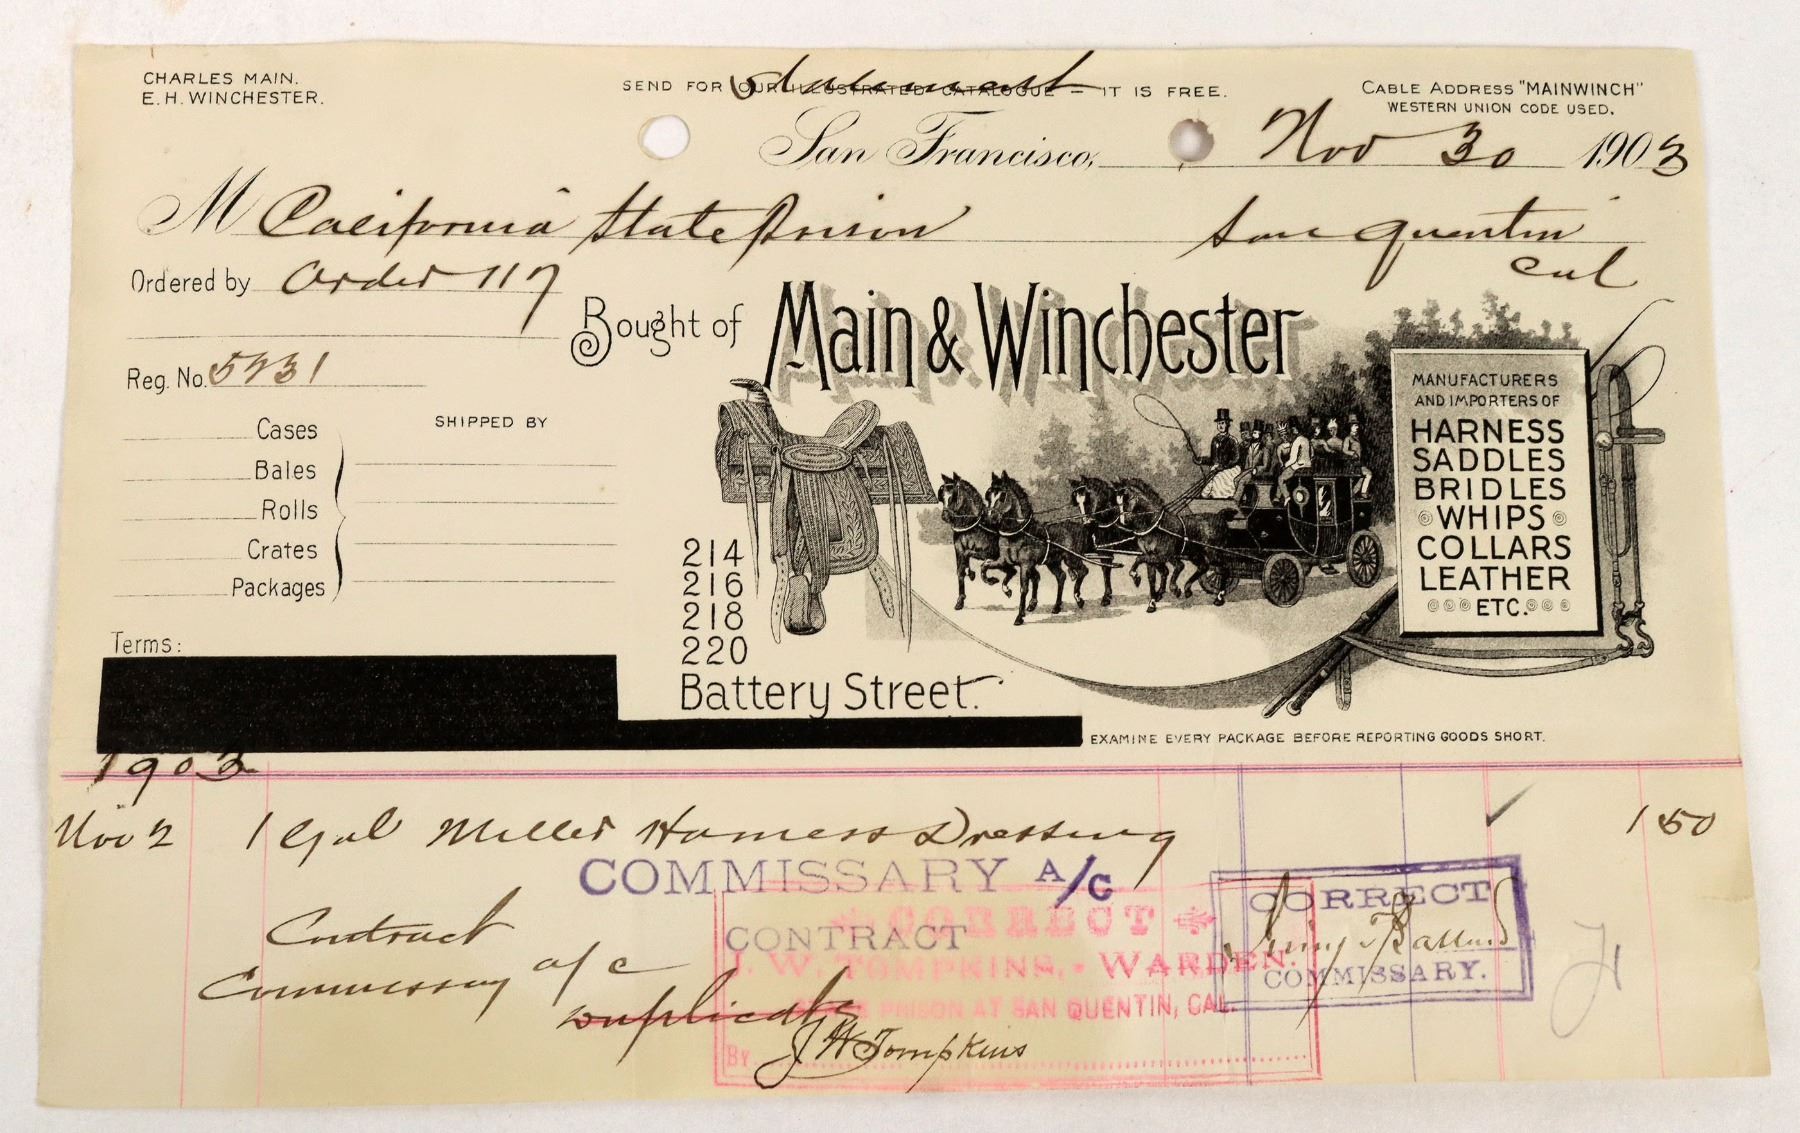 CHARLES MAIN.
E. H. WINCHESTER.
SEND FOR OUR ILLUSTRATED CATALOGUE - IT IS FREE.
Statement
CABLE ADDRESS "MAINWINCH"
WESTERN UNION CODE USED.
San Francisco, Nov 30 1903
M California State Prison San Quentin
Cal
Ordered by Order 117
Bought of Main & Winchester
Reg. No. 5731
SHIPPED BY
Cases
Bales
Rolls
Crates
Packages
Terms:
214
216
218
220
Battery Street.
MANUFACTURERS
AND IMPORTERS OF
HARNESS
SADDLES
BRIDLES
WHIPS
COLLARS
LEATHER
ETC.
EXAMINE EVERY PACKAGE BEFORE REPORTING GOODS SHORT.
1903
Nov 2 1 Gal Miller Harness Dressing 1 50
COMMISSARY A/C
CORRECT
CONTRACT
J. W. TOMPKINS, - WARDEN.
STATE PRISON AT SAN QUENTIN, CAL.
BY J W Tompkins
CORRECT
COMMISSARY.
Contract
Commissary a/c
Duplicate